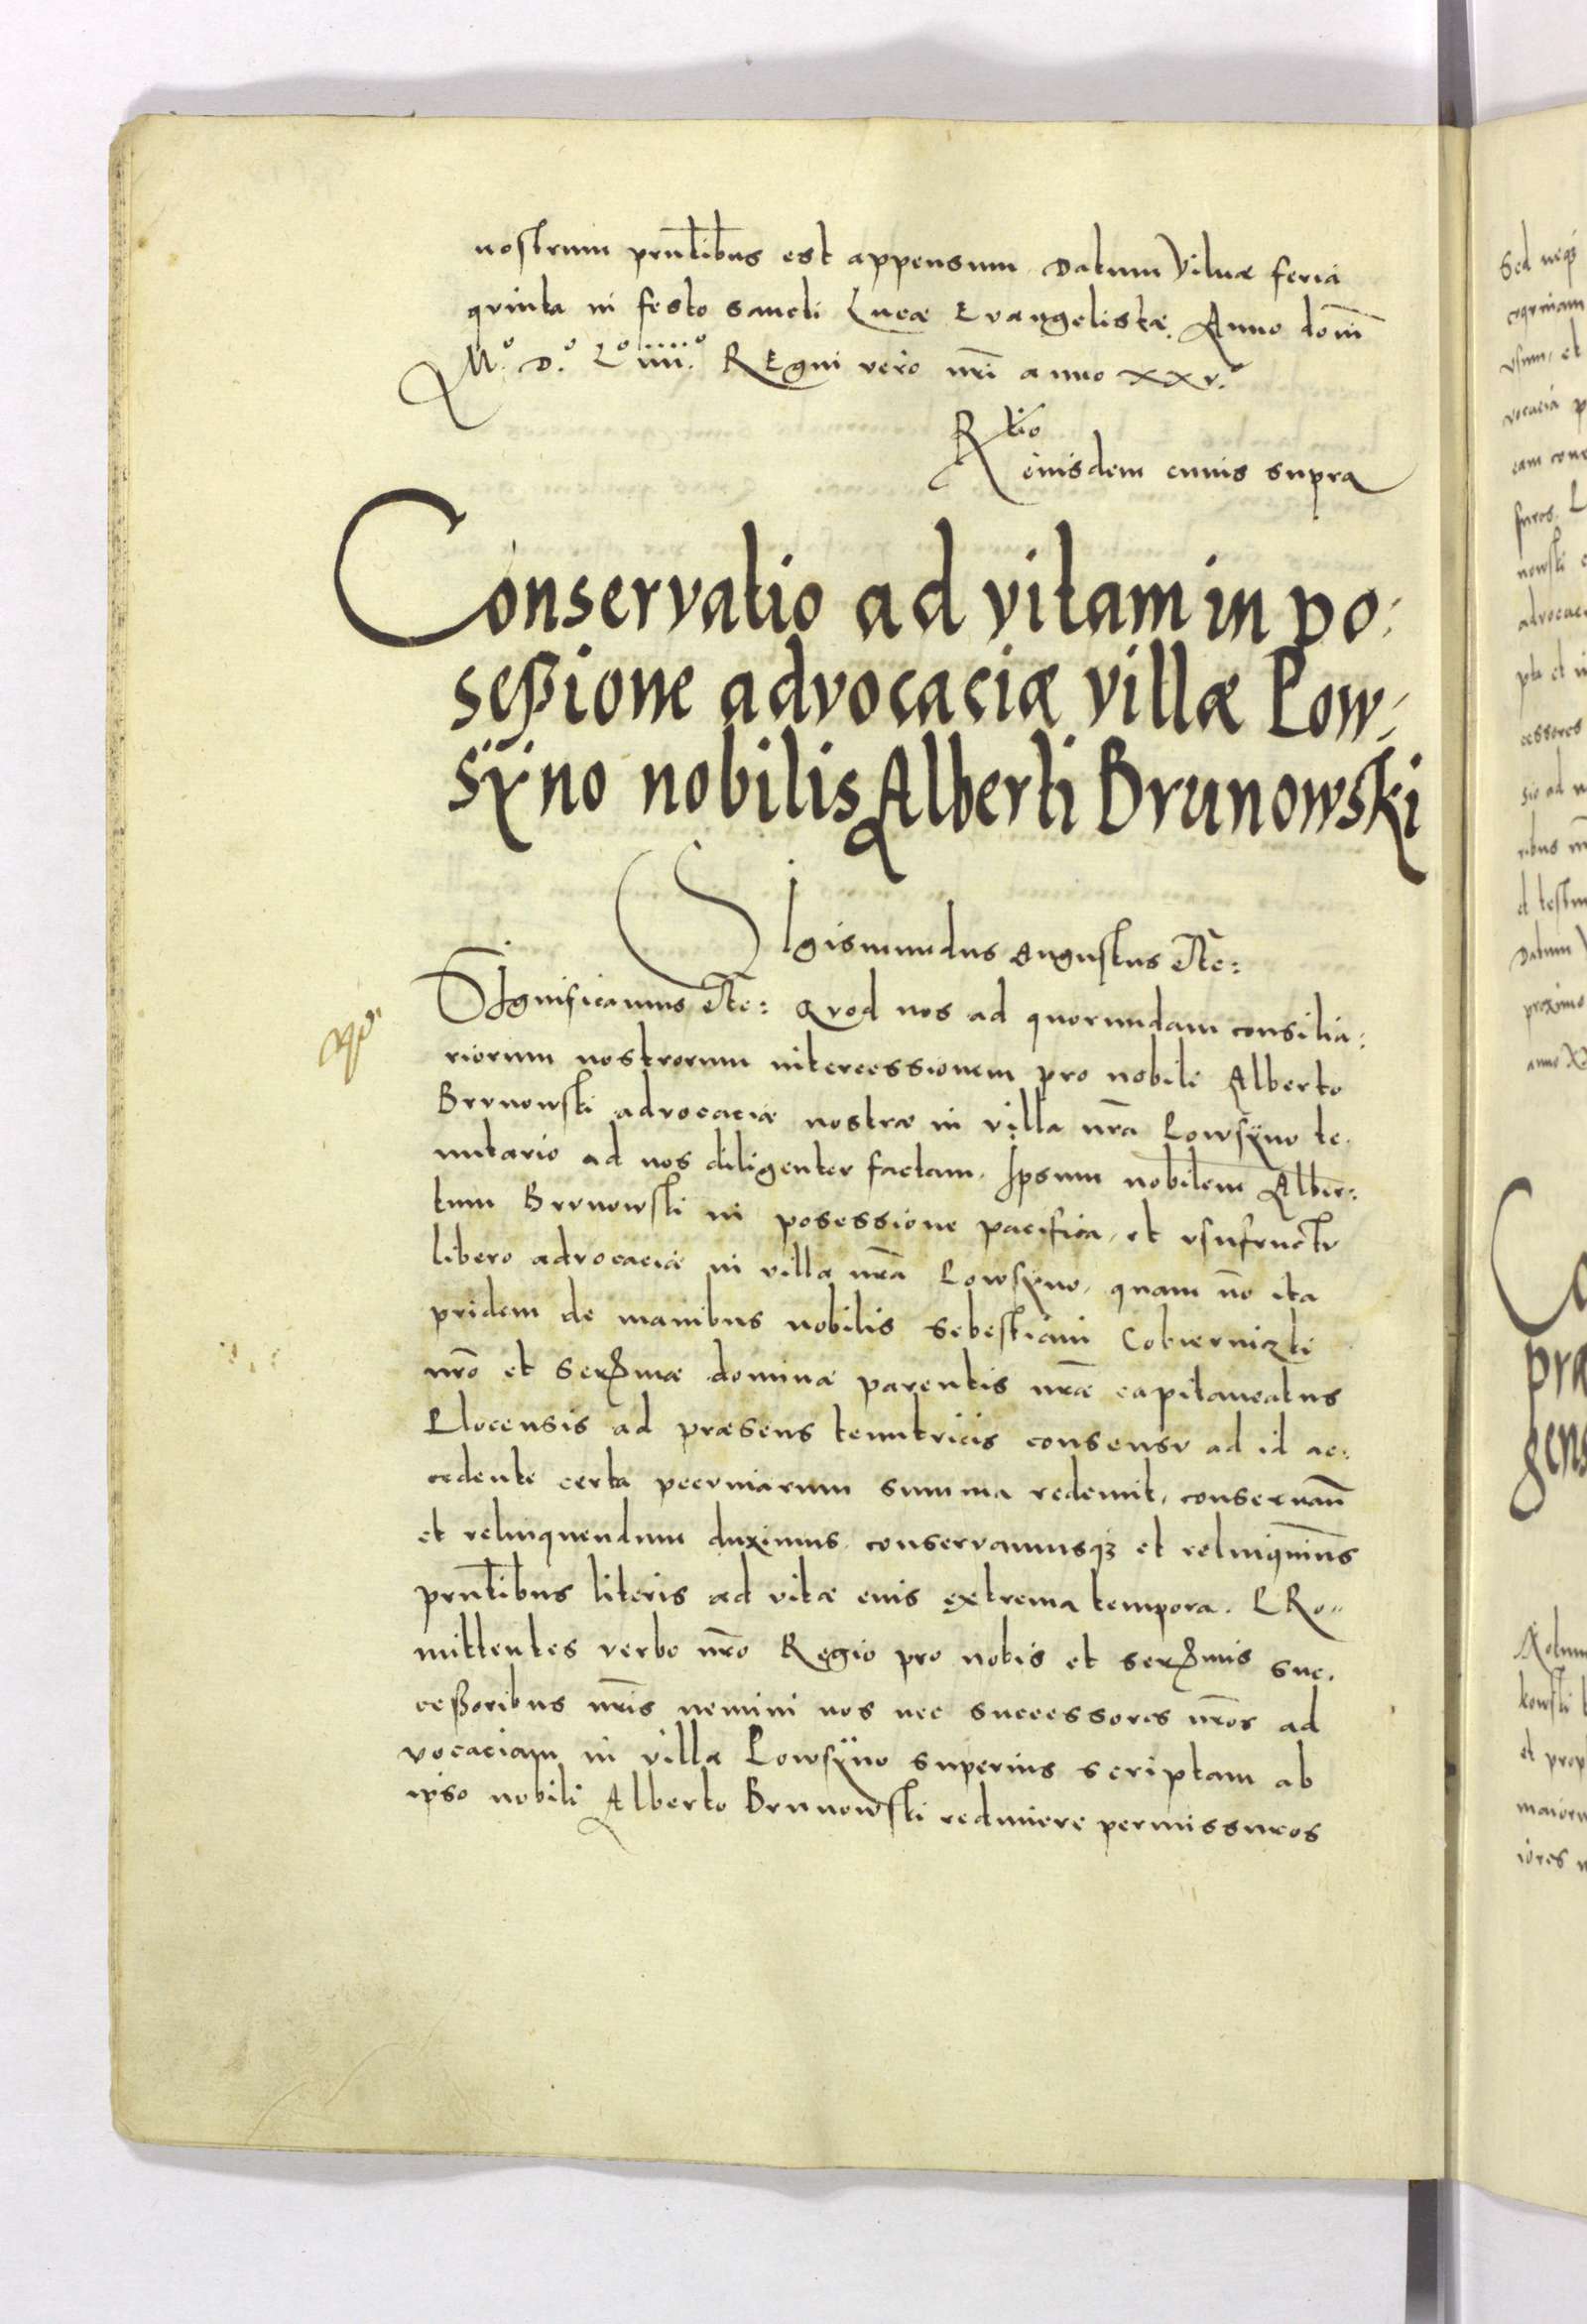 nostrum prntibus est appensum. Datum Vilnæ feria
qvinta in festo Sancti Lucæ Evangelistæ. Anno domi
Mº. Dº. Lº iiiiº. REgni vero nri anno xxvº.
Rtio
eiusdem cuius supra
Conservatio ad vitam in po:
seßione advocaciæ villæ Low:
sÿno nobilis Alberti Brunowski
SIgismundus Augustus etc:
SIgnificamus etc: Qvod nos ad quorundam consilia:
riorum nostrorum intercessionem pro nobili Alberto
Brvnowski advocaciæ nostræ in villa nra Lowsÿno te-
nutario ad nos diligenter factam. Ipsum nobilem Alber:
tum Brvnowski in posessione pacifica, et vsufructv
libero advocaciæ in villa nra Lowsÿno, quam no ita
pridem de manibus nobilis Sebestiani
nro et Serenmæ dominæ parentis nræ capitaneatus
Plocensis ad præsens tenutricis consensv ad id ac:
cedente certa pecvniarum summa redemit, conservan
et relinquendum duximus. conservamusqz et relinquimus
prntibus literis ad vitæ eius extrema tempora. PRo"
mittentes verbo nro Regio pro nobis et Serenmis suc.
ceßoribus nris nemini nos nec successores nros ad
vocaciam in villa Lowsÿno superius scriptam ab
ipso nobili Alberto Brunowski redimere permissuros